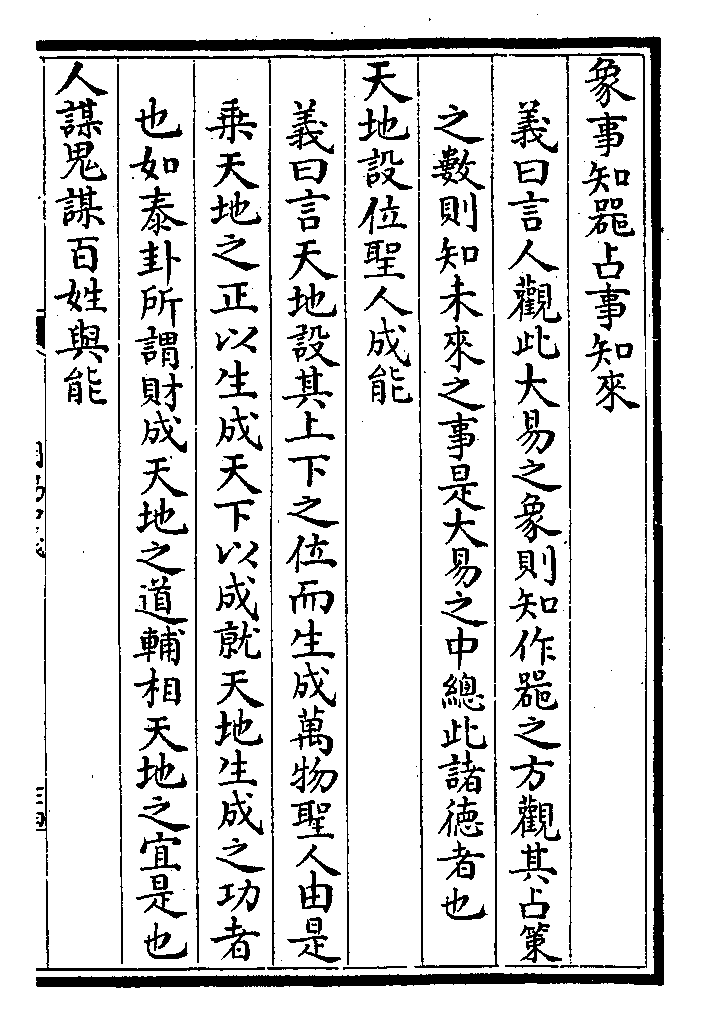 象事知器占事知來
義曰言人觀此大易之象則知作器之方觀其占策
之數則知未來之事是大易之中總此諸德者也
天地設位聖人成能
義曰言天地設其上下之位而生成萬物聖人由是
乗天地之正以生成天下以成就天地生成之功者
也如泰卦所謂財成天地之道輔相天地之宜是也
人謀鬼謀百姓與能